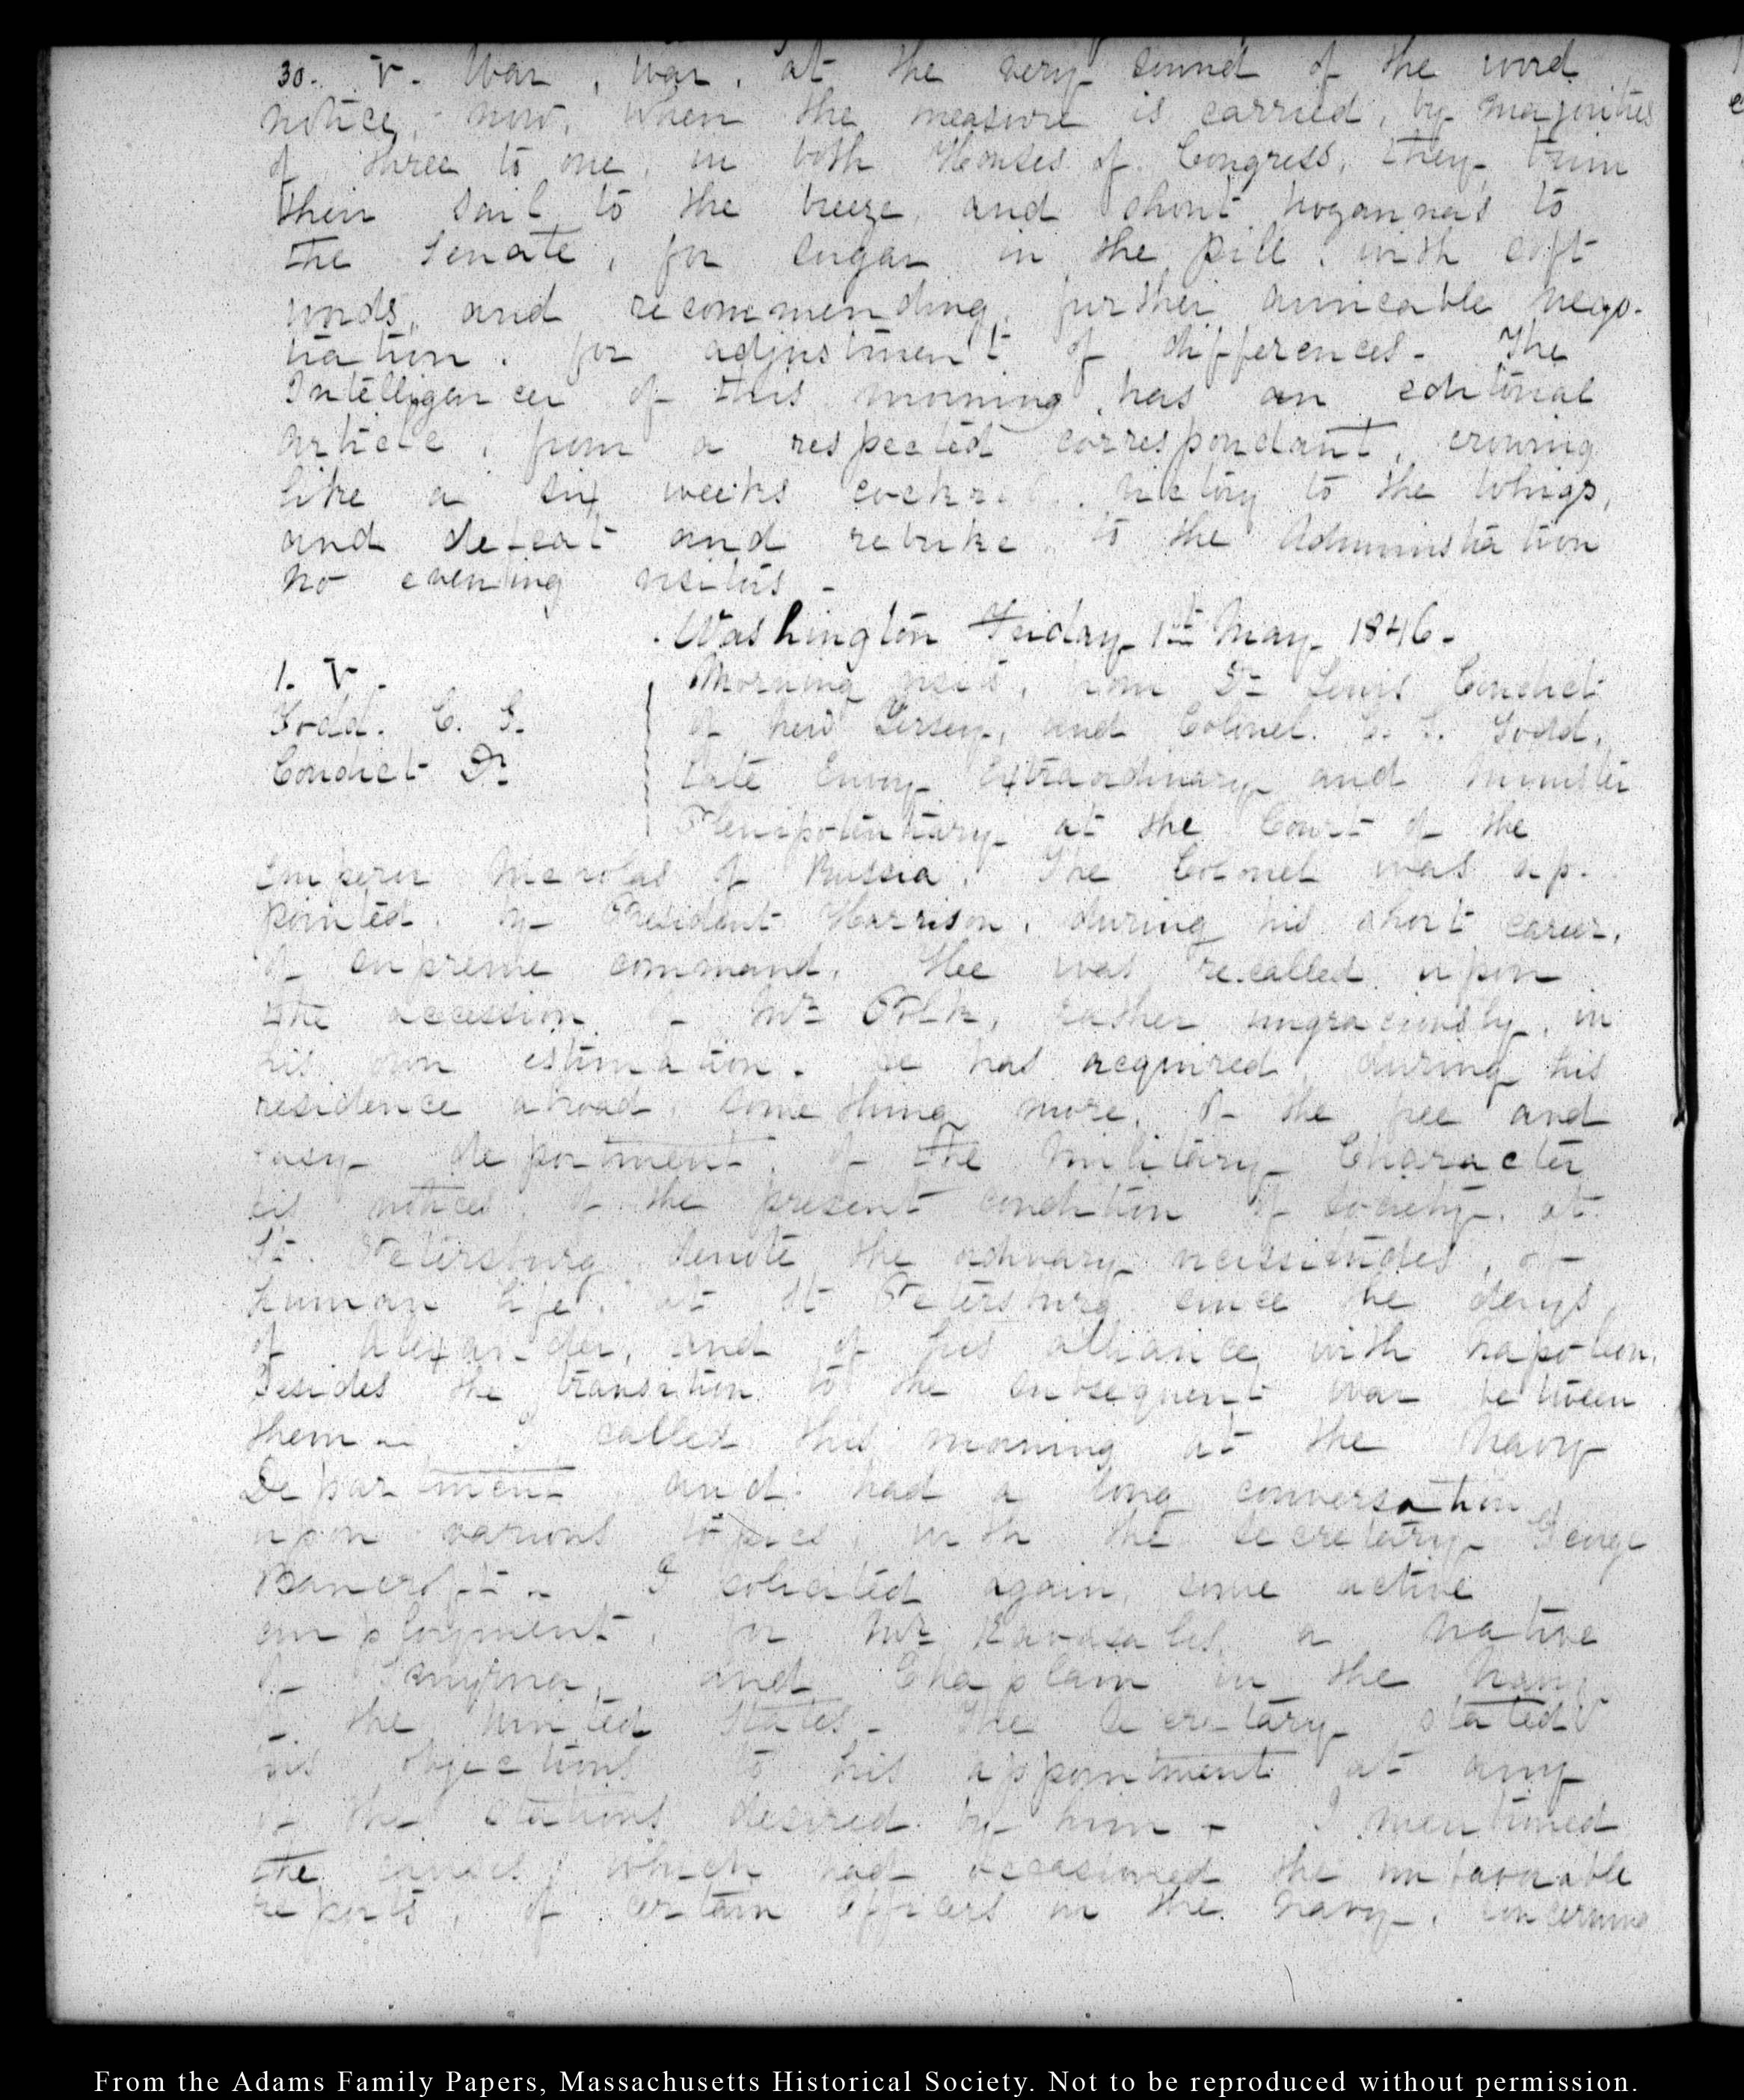 30. V. War, war, at the very sound of the word
notice, now, when the measure is carried, by majorities
of three to one, in both Houses of Congress, they trim
their sail to the breeze, and shout hozannas to
the Senate, for sugar in the pill, with soft
words, and recommending further amicable nego-
tiation, for adjustment of differences. The
Intelligencer of this morning, has an editorial
article, from a respected correspondant, crowing
like a six weeks cockrel, victory to the Whigs,
and defeat and rebuke to the Administration
No evening visitors -
Washington Friday 1st May 1846.
1. V.
Todd. C. S.
Condict Dr
Morning visits, from Dr Lewis Condict
of New Jersey, and Colonel C. S. Todd,
late Envoy Extraordinary and Minister
Plenipotentiary at the Court of the
Emperor Nicholas of Russia. The Colonel was ap-
pointed by President Harrison, during his short career,
of supreme command. He was recalled upon
the accession of Mr Polk, rather ungraciously, in
his own estimation. He has acquired, during his
residence abroad, something more, of the free and
easy deportment, of the Military Character
his notices, of the present condition of society, at
St. Petersburg denote the ordinary vicissitudes, of
human life, at St Petersburg since the days,
of Alexander, and of his alliance with Napoleon,
besides the transition to the subsequent war between
them - I called this morning at the Navy
Department and had a long conversation
upon various topics, with the Secretary George
Bancroft - I solicited again, some active
employment, for Mr a native
of Smyrna, and Chaplain in the Navy
of the United States. The Secretary stated
his objections to his appointment at any
of the stations desired by him - I mentioned
the causes, which had occasioned the unfavorable
reports, of certain Officers in the Navy, concerning
From the Adams Family Papers, Massachusetts Historical Society. Not to be reproduced without permission.